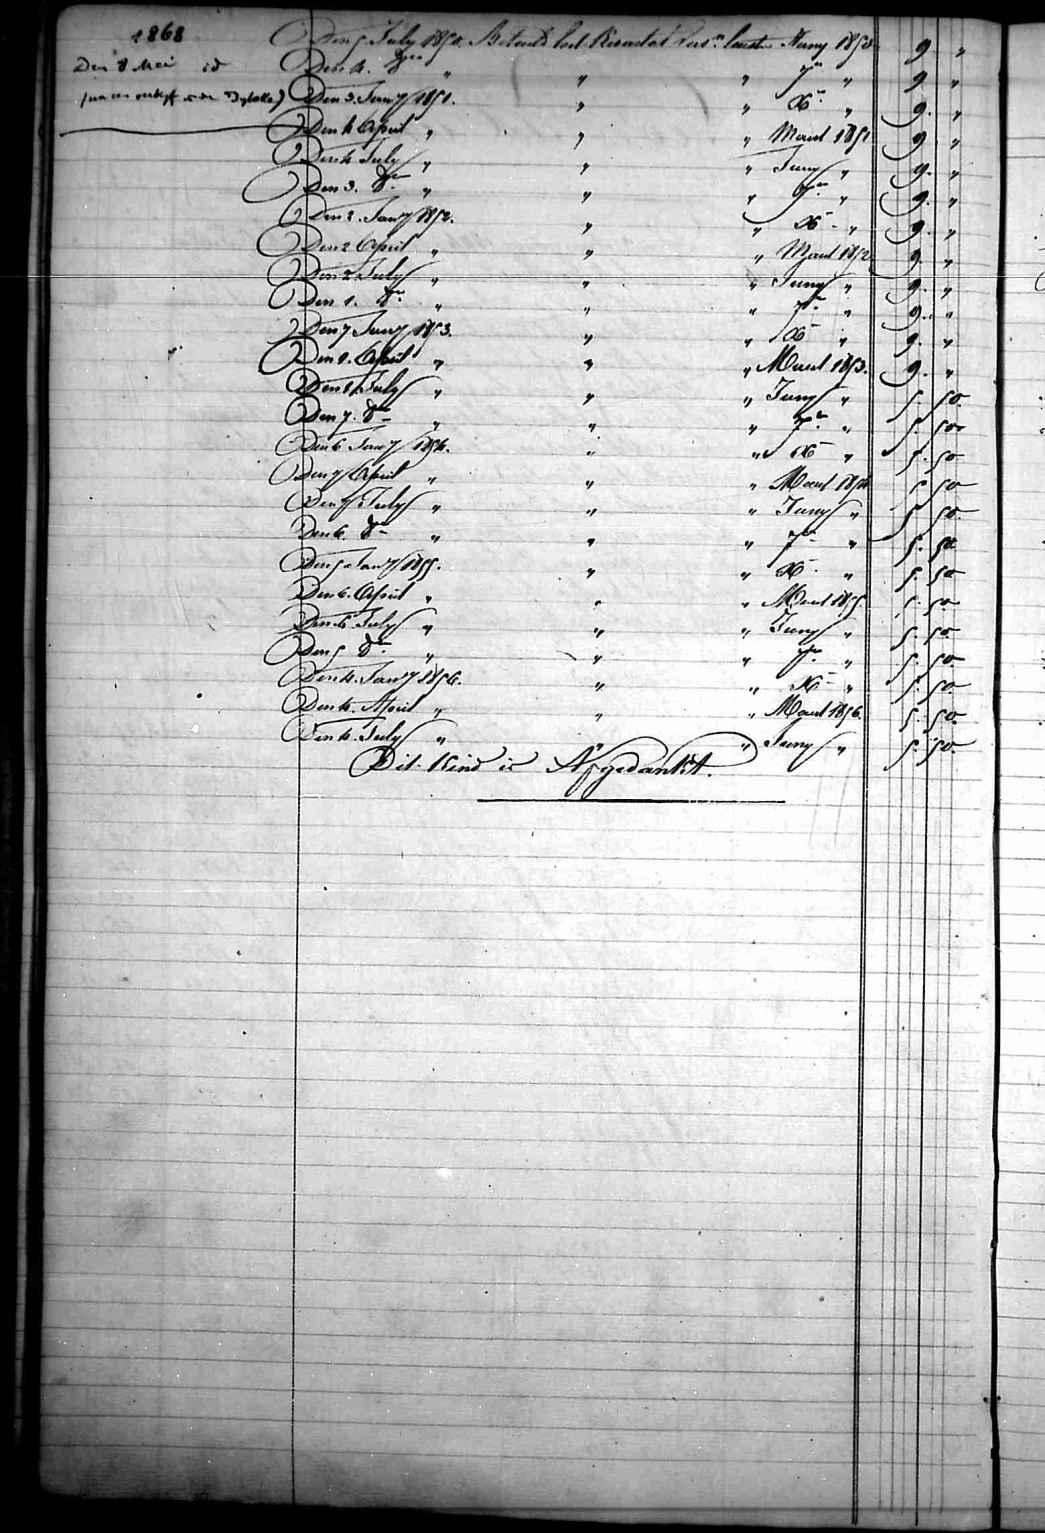 1868
Den 8 Mei id
Den 5 July 1850. Betaald het Kwartaal Juny 1850 9 "
Den 4. " " " " 9 "
Den 3. Jany 1851. " " Xb " 9. "
Den 4 April " " " Maart 1851 9 "
Den 4 July " " " Juny " 9. "
Den 3. 8br " " " 7br " 9. "
Den 2. Jany 1852. " " Xb " 9. "
Den 2 April " " " Maart 1852 9. "
Den 2 July " " " Juny " 9. "
Den 1. 8br " " " 7br " 9. "
Den 7 Jany 1853. " " Xb " 9. "
Den 1. April " " " Maart 1853. 9. "
Den 1 July " " " Juny " 5. 50
Den 7. 8br " " " 7br " 5. 50
Den 6 Jany 1854. " " Xb " 5. 50
Den 7 April " " " Maart 1854 5 50
Den 7 July " " " Juny " 5 50
Den 6. 8br " " " 7br " 5. 50
Den 5 Jany 1855. " " Xb " 5. 50
Den 6. April " " " Maart 1855 5. 50
Den 6 July " " " Juny " 5. 50
Den 5 8br " " " 7br " 5. 50
Den 4. Jany 1856. " " Xb " 5. 50
Den 4. April " " " Maart 1856. 5. 50
Den 4. July " " " Juny " 5. 50
Dit Kind is Afgedankt.